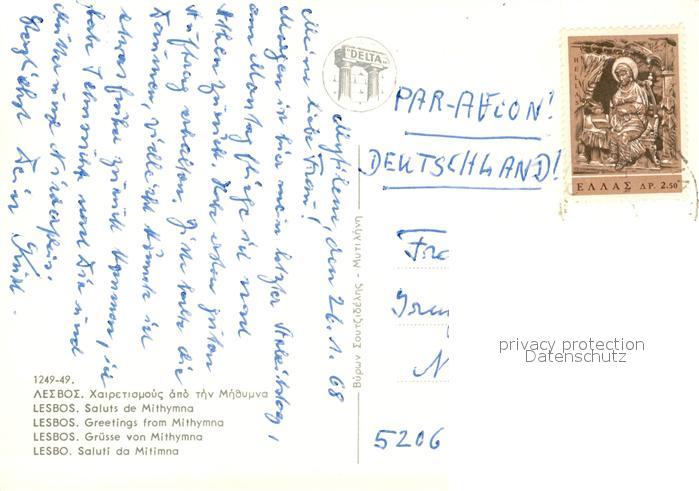 Mytilene, den 26.1.68
Meine liebe Frau!
Morgen ist hier mein letzter Arbeitstag,
am Montag fliege ich nach
Athen zurück. Habe einen guten
Auftrag erhalten. Bitte halte die
Daumen, vielleicht könnte ich
etwas früher zurück kommen, ich
habe Sehnsucht nach Dir und
Herzlichst Dein
DELTA
PAR-AVION!
DEUTSCHLAND!
HELLAS
ΕΛΛΑΣ ΔΡ. 2.50
Βύρων Σουτζιδέλης - Μυτιλήνη
Fra
N
5206
privacy protection
Datenschutz
1249-49.
ΛΕΣΒΟΣ. Χαιρετισμούς ἀπό τήν Μήθυμνα
LESBOS. Saluts de Mithymna
LESBOS. Greetings from Mithymna
LESBOS. Grüsse von Mithymna
LESBO. Saluti da Mitimna